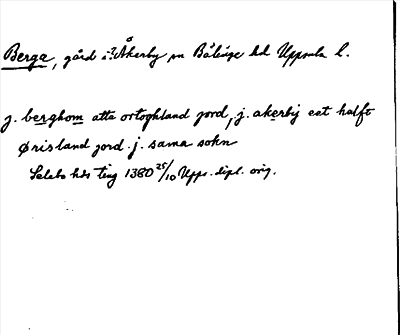 Berga, gård i ? Åkerby sn Bälinge hd Uppsala l.
j. berghom atta ortoghland jord, j. akerbij eet halft
Ørisland jord. j. sama sokn
hds ting 1380 25/10 Upps. dipl. orig.